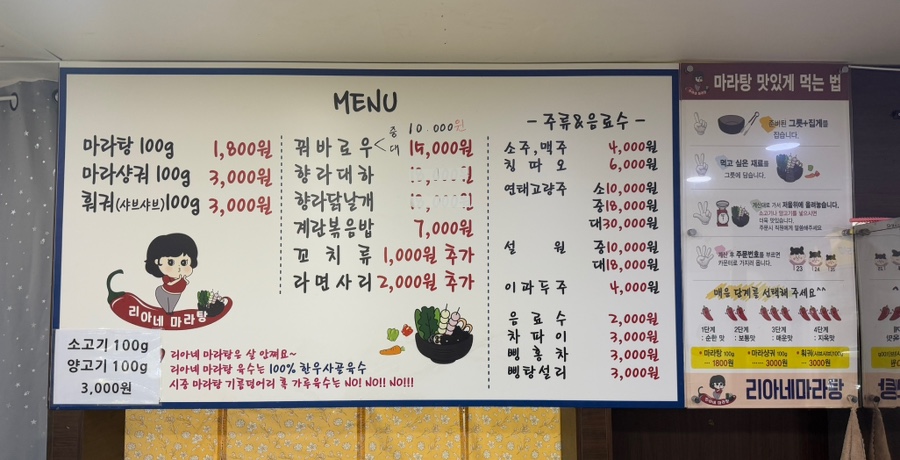 MENU
마라탕 100g 1,800원
마라샹궈 100g 3,000원
훠궈(샤브샤브)100g 3,000원
리아네 마라탕
소고기 100g
양고기 100g
3,000원
중 10.000원
꿔바로우< 대 15,000원
향라대하
향라닭날개
계란볶음밥 7,000원
꼬치류 1,000원 추가
라면사리 2,000원 추가
리아네 마라탕은 살 안쪄요~
리아네 마라탕 육수는 100% 한우사골육수
시중 마라탕 기름덩어리 훅 가루육수는 NO! NO!! NO!!!
- 주류&음료수 -
소주,맥주 4,000원
칭따오 6,000원
연태고량주 소10,000원
중18,000원
대30,000원
설원 중10,000원
대18,000원
이과두주 4,000원
음료수 2,000원
차파이 3,000원
삥홍차 3,000원
삥탕설리 3,000원
마라탕 맛있게 먹는 법
준비된 그릇+집게를
잡습니다.
먹고 싶은 재료를
그릇에 담습니다.
저울위에 올려놓습니다.
계산 후 주문번호를 부르면
카운터로 가지러 옵니다.
123 124 125
매운 단계를 선택해 주세요^^
1단계 2단계 3단계 4단계
: 순한 맛 : 보통맛 : 매운맛 : 지옥맛
마라탕 100g 마라샹궈 100g 훠궈(샤브샤브)100g
1800원 3000원 3000원
리아네마라탕